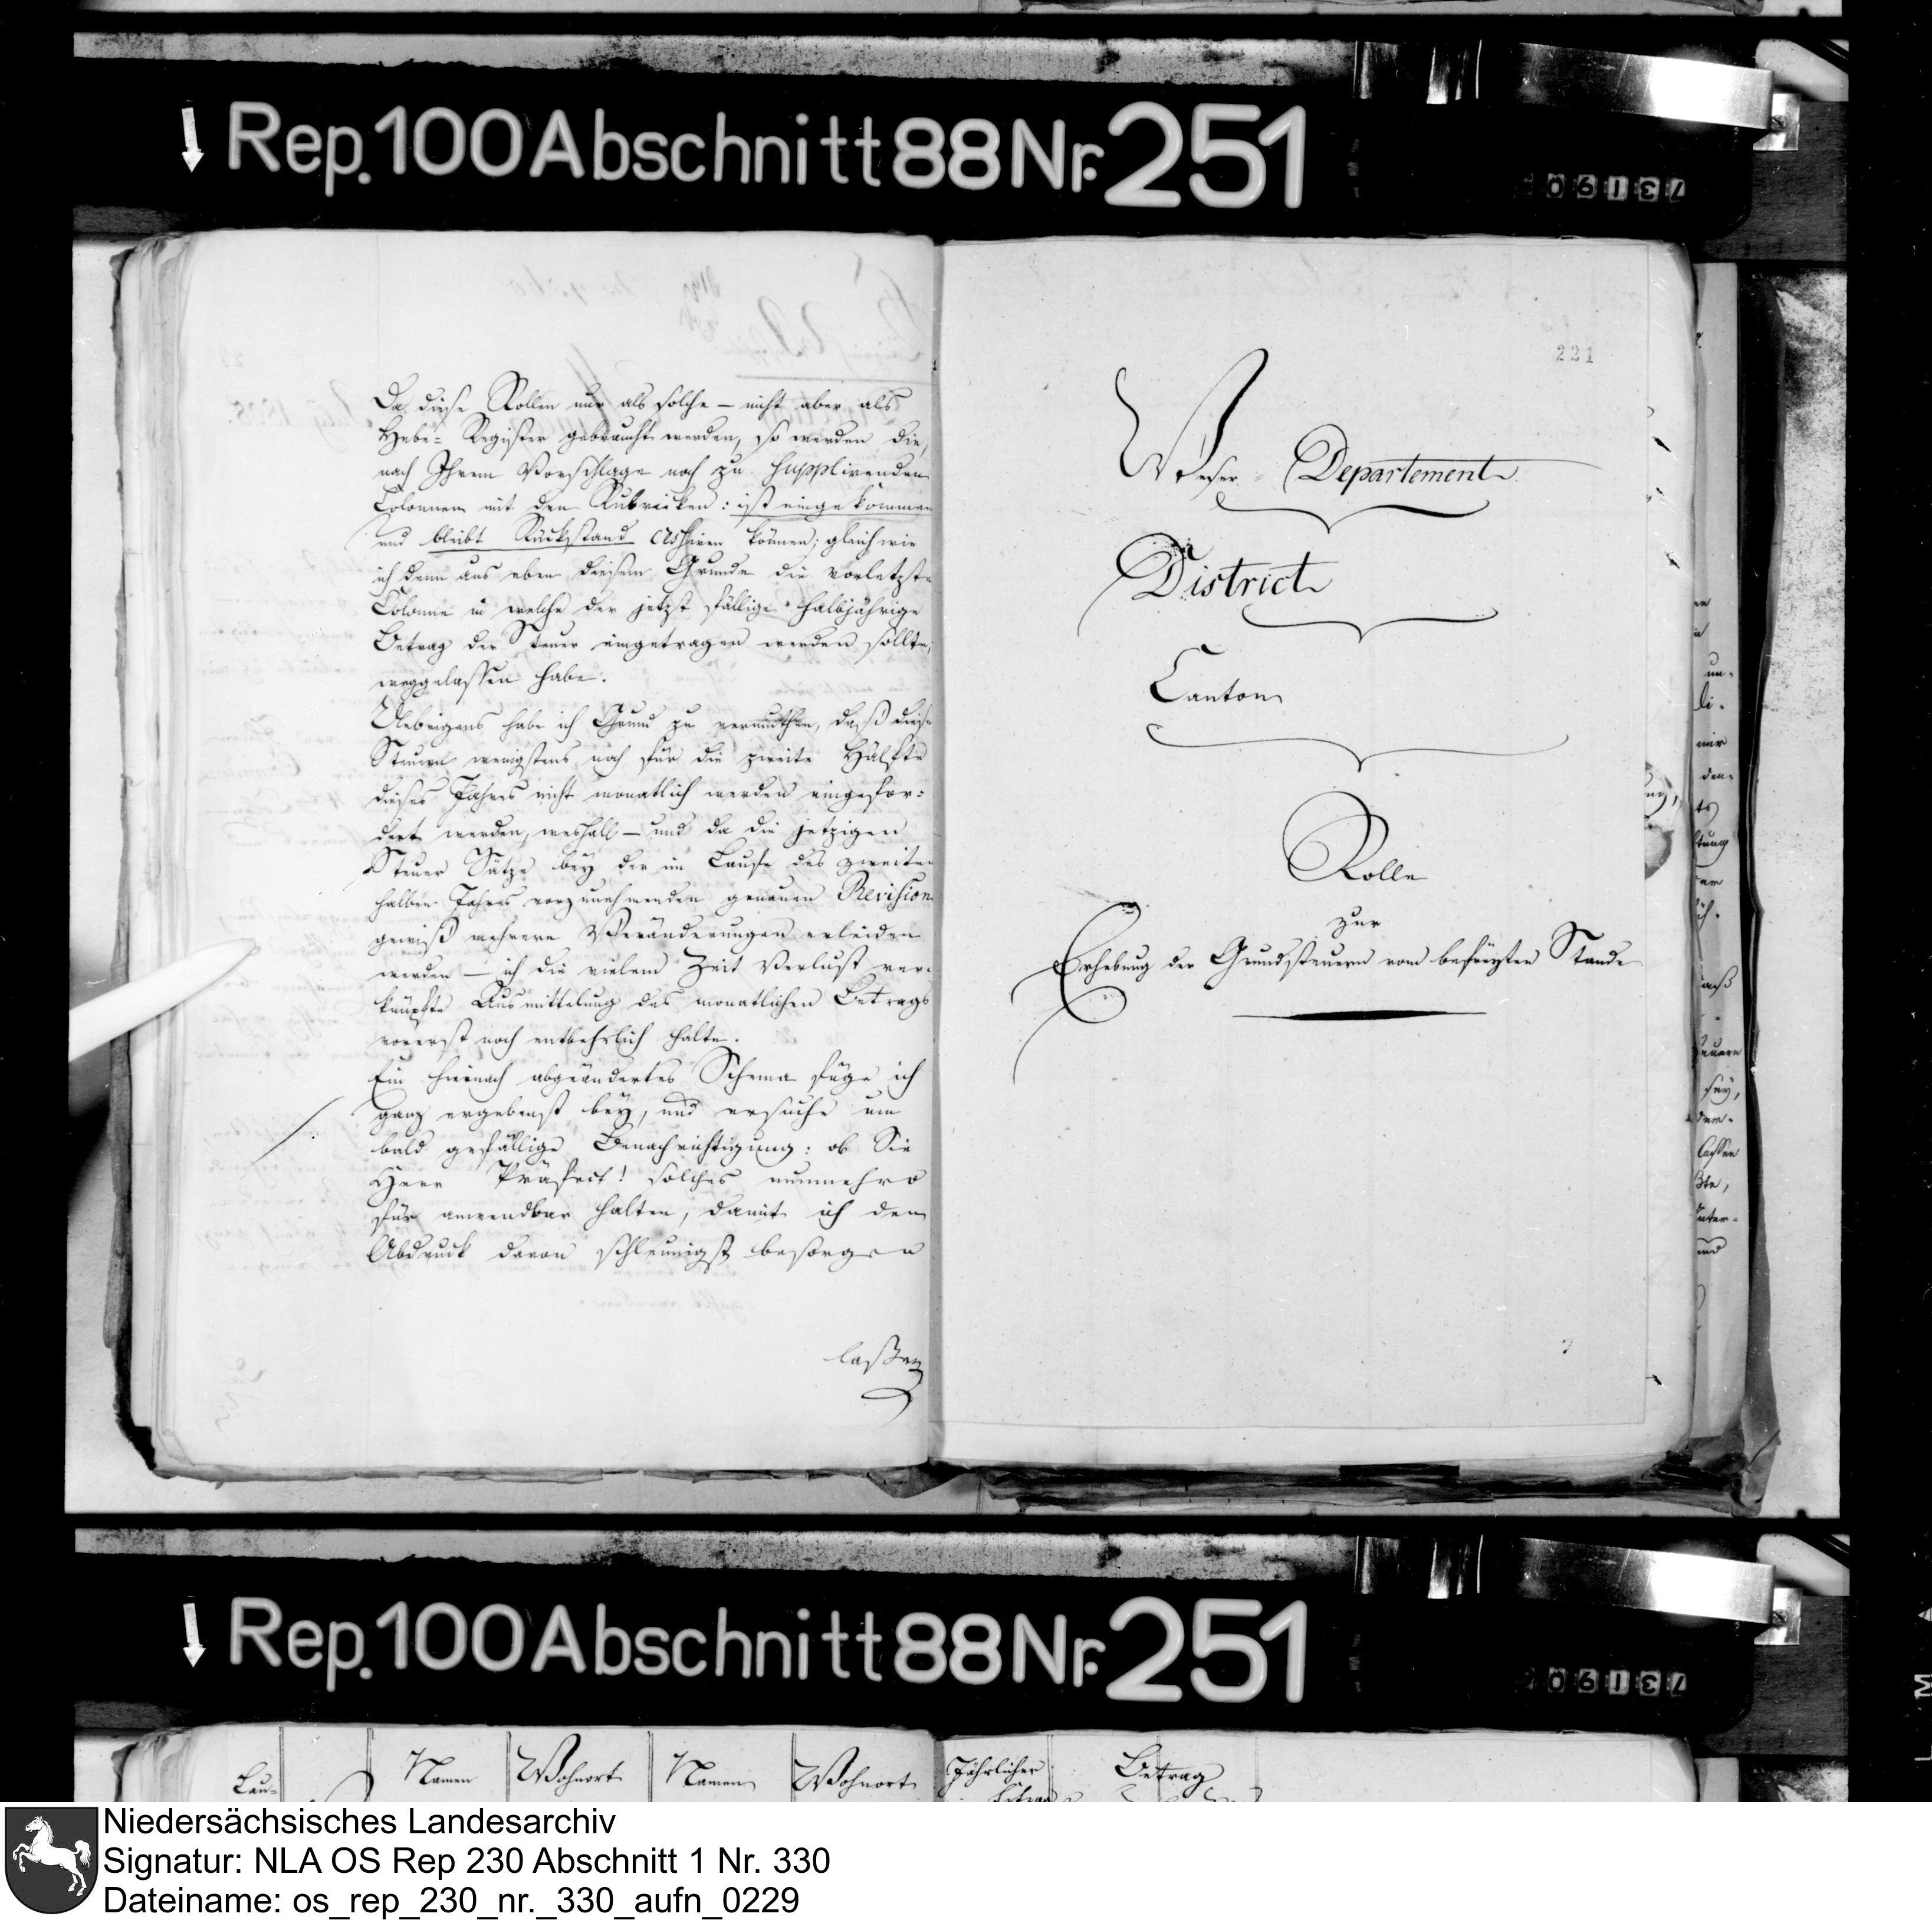 Rep. 100 Abschnitt 88 Nr. 251
73190
Da diese Rollen nur als solche – nicht aber als
Hebe- Register gebraucht werden, so werden die,
nach Ihrem Vorschlage noch zu supplirenden
Colonnen mit den Rubricken: ist eingekommen
und bleibt Rückstand cessiren können; gleichwie
ich denn aus eben diesem Grunde die vorletzte
Colonne in welche der jetzt fällige halbjährige
Betrag der Steuer eingetragen werden sollte,
weggelassen habe.
Uebrigens habe ich Grund zu vermuthen, daß diese
Steuern wenigstens noch für die zweite Hälfte
dieses Jahres nicht monatlich werden eingefor-
dert werden, weshalb – und da die jetzigen
Steuer Sätze bey der im Laufe des zweiten
halben Jahres vorzunehmenden genauen Revision
gewiß mehrere Veränderungen erleiden
werden – ich die vielem Zeit Verlust ver-
knüpfte Ausmittelung des monatlichen Betrags
vorerst noch entbehrlich halte.
Ein hiernach abgeändertes Schema füge ich
ganz ergebenst bey, und ersuche um
bald gefällige Benachrichtigung: ob Sie
Herr Präfect! solches nunmehro
für anwendbar halten, damit ich den
Abdruck davon schleunigst besorgen
laßen
221
Weser-Departement
District
Canton
Rolle
zur
Erhebung der Grundsteuern vom befreyten Stande
Rep. 100 Abschnitt 88 Nr. 251
73190
Lau-
Namen
Wohnort
Namen
Wohnort
Jährlicher
Betrag
Niedersächsisches Landesarchiv
Signatur: NLA OS Rep 230 Abschnitt 1 Nr. 330
Dateiname: os_rep_230_nr._330_aufn_0229